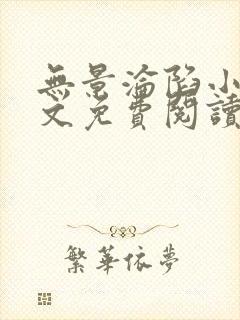 無景淪陷小
文免費閱讀
繁華依夢